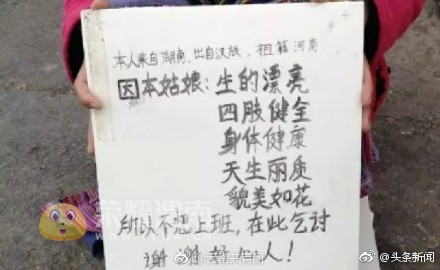 本人来自湖南，出自汉族，祖籍河南
因本姑娘：生的漂亮
四肢健全
身体健康
天生丽质
貌美如花
所以不想上班，在此乞讨
谢谢好心人！
荣耀渭南
@头条新闻